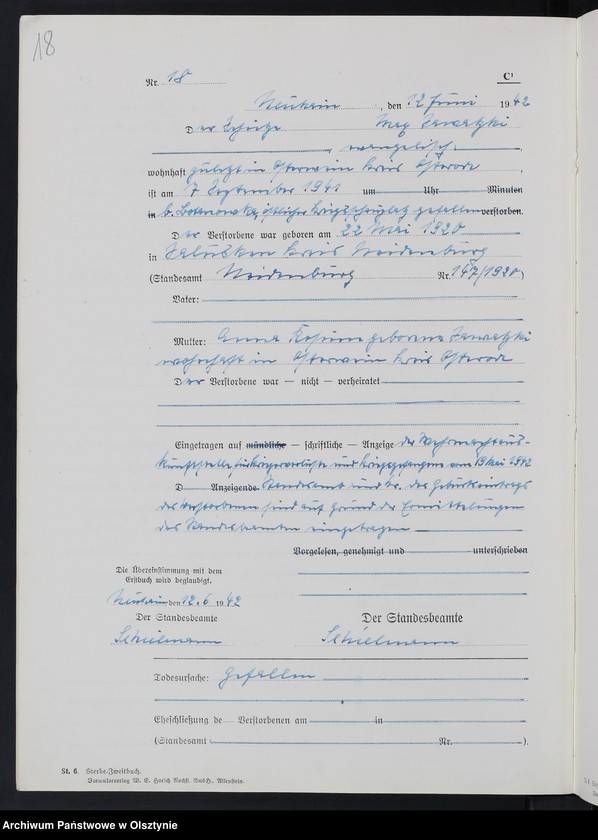 18
Nr. 18 C¹
, den 12 Juni 1942
Der Schütze Max Zawatzki
, evangelisch,
wohnhaft zuletzt in Osterwein Kreis Osterode
ist am 7 September 1941 um Uhr Minuten
in b. östlicher Kriegsschauplatz gefallen verstorben.
Der Verstorbene war geboren am 22 Mai 1920
in Salusken Kreis Neidenburg
(Standesamt Neidenburg Nr. 147/1920)
Vater:
Mutter: Anna geborene Zawatzki
wohnhaft in Osterwein Kreis Osterode
Der Verstorbene war — nicht — verheiratet
Eingetragen auf mündliche — schriftliche — Anzeige der Wehrmachtaus-
kunftstelle für Kriegerverluste und Kriegsgefangene vom 19 Mai 1942
D Anzeigende Standesamt und Nr. des Geburtseintrags
des Verstorbenen sind auf Grund der Ermittelungen
des Standesbeamten eingetragen
Vorgelesen, genehmigt und unterschrieben
Die Übereinstimmung mit dem
Erstbuch wird beglaubigt.
den 12.6 1942
Der Standesbeamte Der Standesbeamte
Todesursache: Gefallen
Eheschließung de Verstorbenen am in
(Standesamt Nr. ).
St. 6. Sterbe-Zweitbuch.
Formularverlag W. E. Harich Nachf. GmbH., Allenstein.
Archiwum Państwowe w Olsztynie